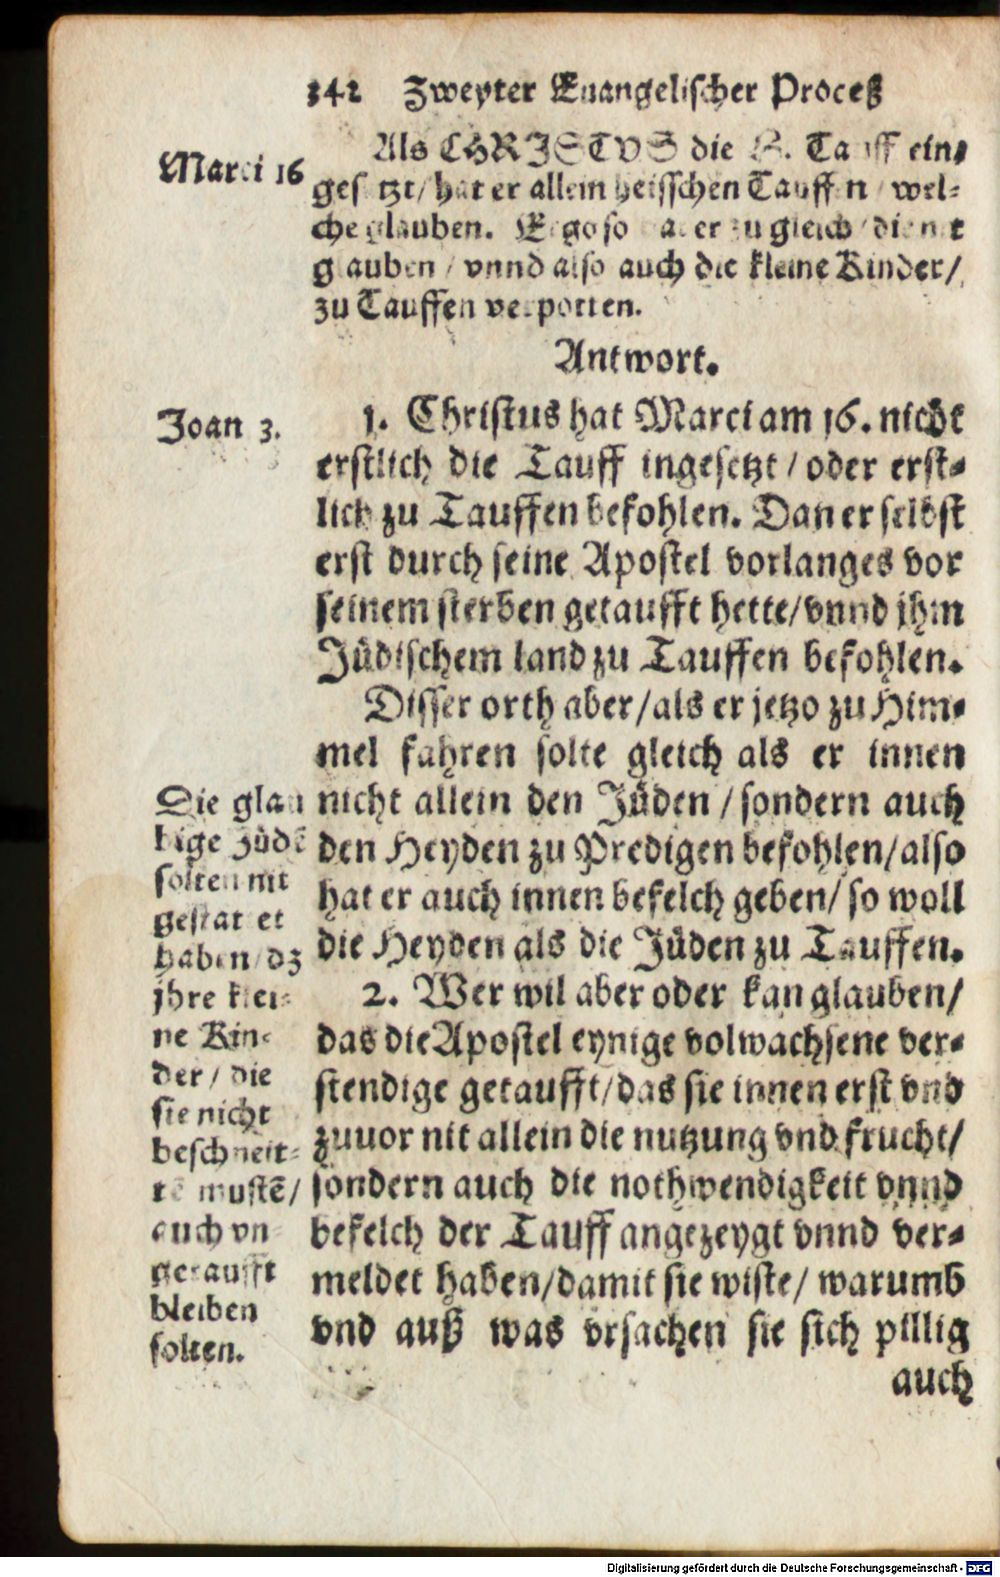 342 Zweyter Euangelischer Proceß
Als CHRISTVS die H. Tauff ein-
gesetzt/ hat er allein heisschen Tauffen/ wel-
che glauben. Ergo so hat er zu gleich/ die nit
glauben/ vnnd also auch die kleine Kinder/
zu Tauffen verpotten.
Marci 16
Antwort.
1. Christus hat Marci am 16. nicht
erstlich die Tauff ingesetzt/ oder erst-
lich zu Tauffen befohlen. Dan er selbst
erst durch seine Apostel vorlanges vor
seinem sterben getaufft hette/ vnnd jhm
Jüdischem land zu Tauffen befohlen.
Joan 3.
Disser orth aber/ als er jetzo zu Him-
mel fahren solte gleich als er innen
nicht allein den Jüden/ sondern auch
den Heyden zu Predigen befohlen/ also
hat er auch innen befelch geben/ so woll
die Heyden als die Jüden zu Tauffen.
2. Wer wil aber oder kan glauben/
das die Apostel eynige volwachsene ver-
stendige getaufft/ das sie innen erst vnd
zuuor nit allein die nutzung vnd frucht/
sondern auch die nothwendigkeit vnnd
befelch der Tauff angezeygt vnnd ver-
meldet haben/ damit sie wiste/ warumb
vnd auß was vrsachen sie sich pillig
auch
Die glau
bige Jüdē
solten nit
gestattet
haben/ dz
jhre klei-
ne Kin-
der/ die
sie nicht
beschneit-
tē mustē/
auch vn-
getaufft
bleiben
solten.
Digitalisierung gefördert durch die Deutsche Forschungsgemeinschaft - DFG